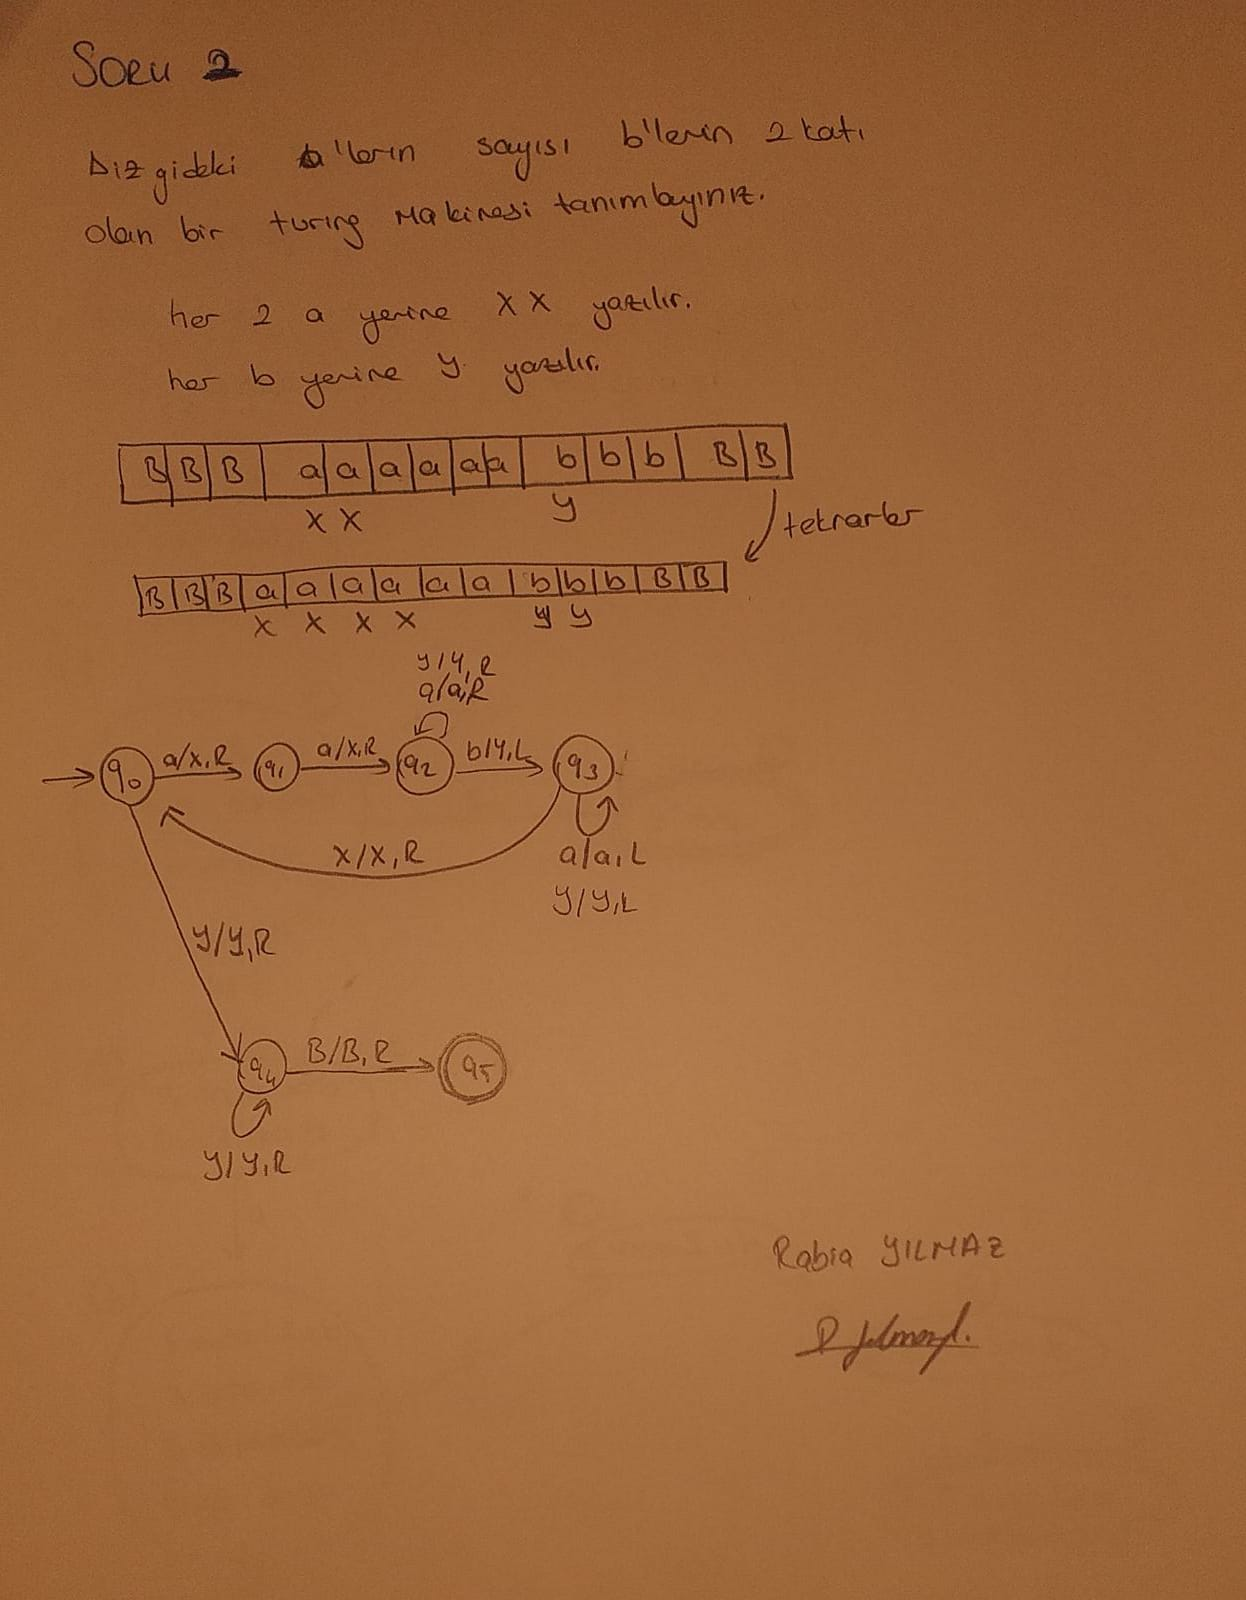 Soru 2
Dizgideki a'ların sayısı b'lerin 2 katı
olan bir turing Makinesi tanımlayınız.
her 2 a yerine X X yazılır.
her b yerine y yazılır.
B B B a a a a a a b b b B B
X X y
tekrarlar
B B B a a a a a a b b b B B
X X X X y y
y/y, R
a/a, R
q0 a/x, R q1 a/x, R q2 b/y, L q3
X/X, R
a/a, L
y/y, L
y/y, R
q4 B/B, R q5
y/y, R
Rabia YILMAZ